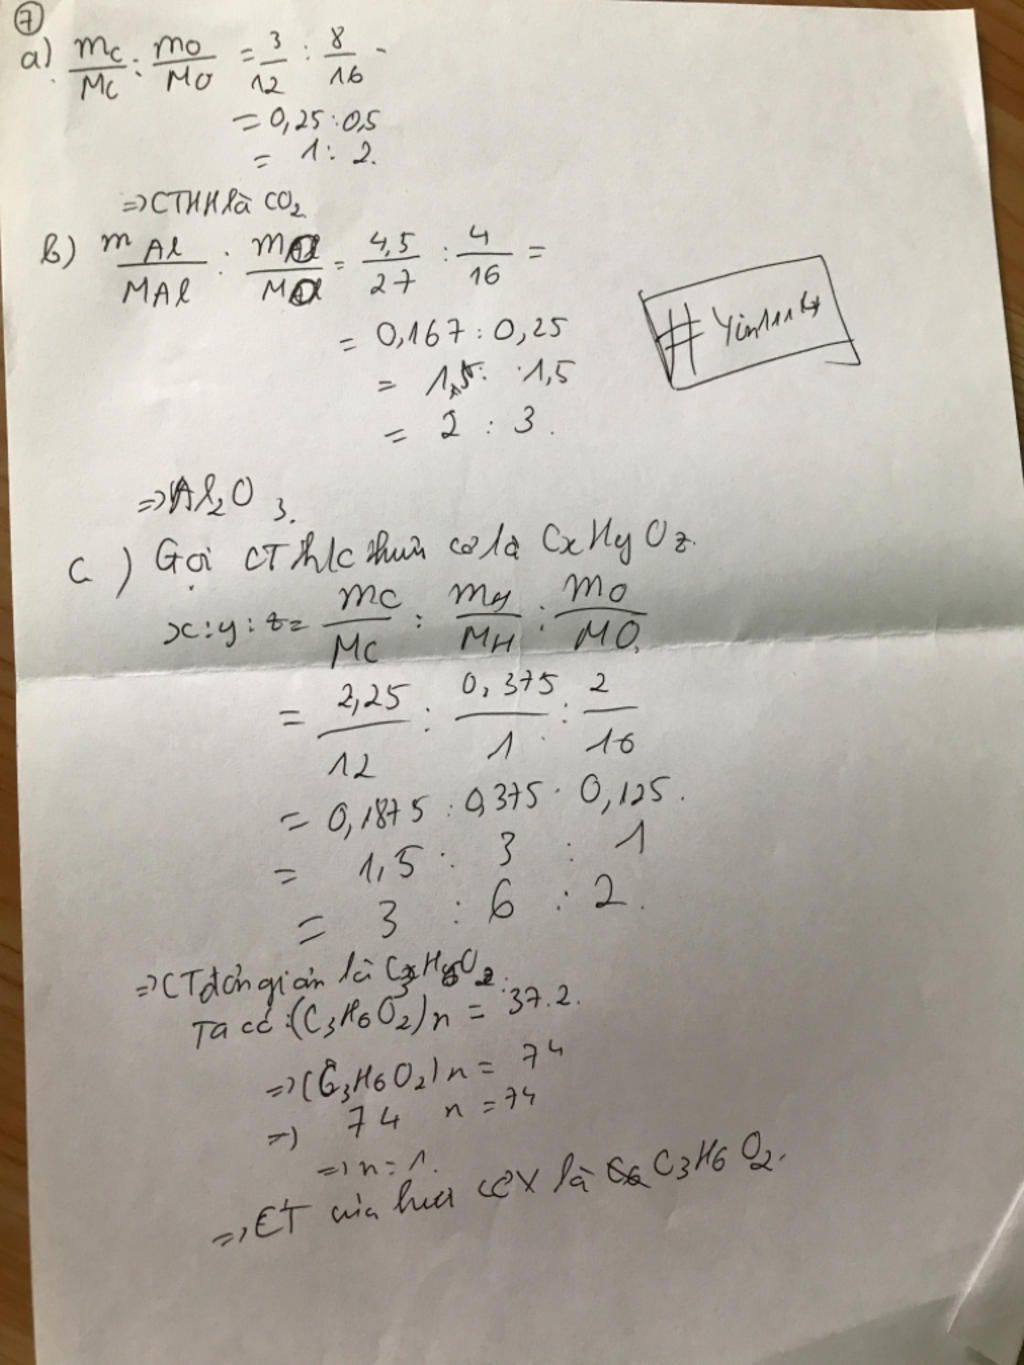 7
a) mC/MC : mO/MO = 3/12 : 8/16
= 0,25 : 0,5
= 1 : 2.
=> CTHH là CO2
b) mAl/MAl : mO/MO = 4,5/27 : 4/16 =
= 0,167 : 0,25
= 1 : 1,5
= 2 : 3.
=> Al2O3.
c) Gọi CT h/c hữu cơ là CxHyOz.
x : y : z = mC/MC : mH/MH : mO/MO
= 2,25/12 : 0,375/1 : 2/16
= 0,1875 : 0,375 : 0,125.
= 1,5 : 3 : 1
= 3 : 6 : 2.
=> CT đơn giản là C3H6O2.
Ta có : (C3H6O2)n = 37.2.
=> (C3H6O2)n = 74
=> 74 n = 74
=> n = 1.
=> CT của hữu cơ X là C3H6O2.